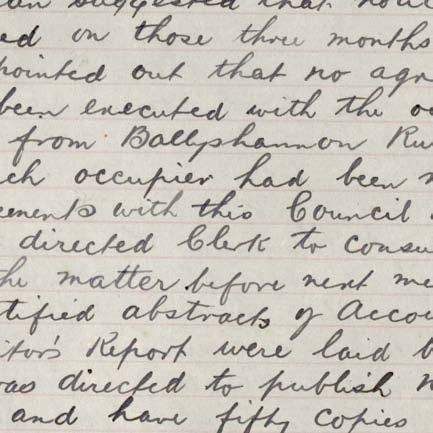 suggested that
ed on those three months
pointed out that no agr
been executed with the oc
from Ballyshannon Ru
ch occupier had been
eements with this Council
directed Clerk to consu
he matter before next me
tified abstracts of Accou
itor's Report were laid b
was directed to publish
and have fifty copies